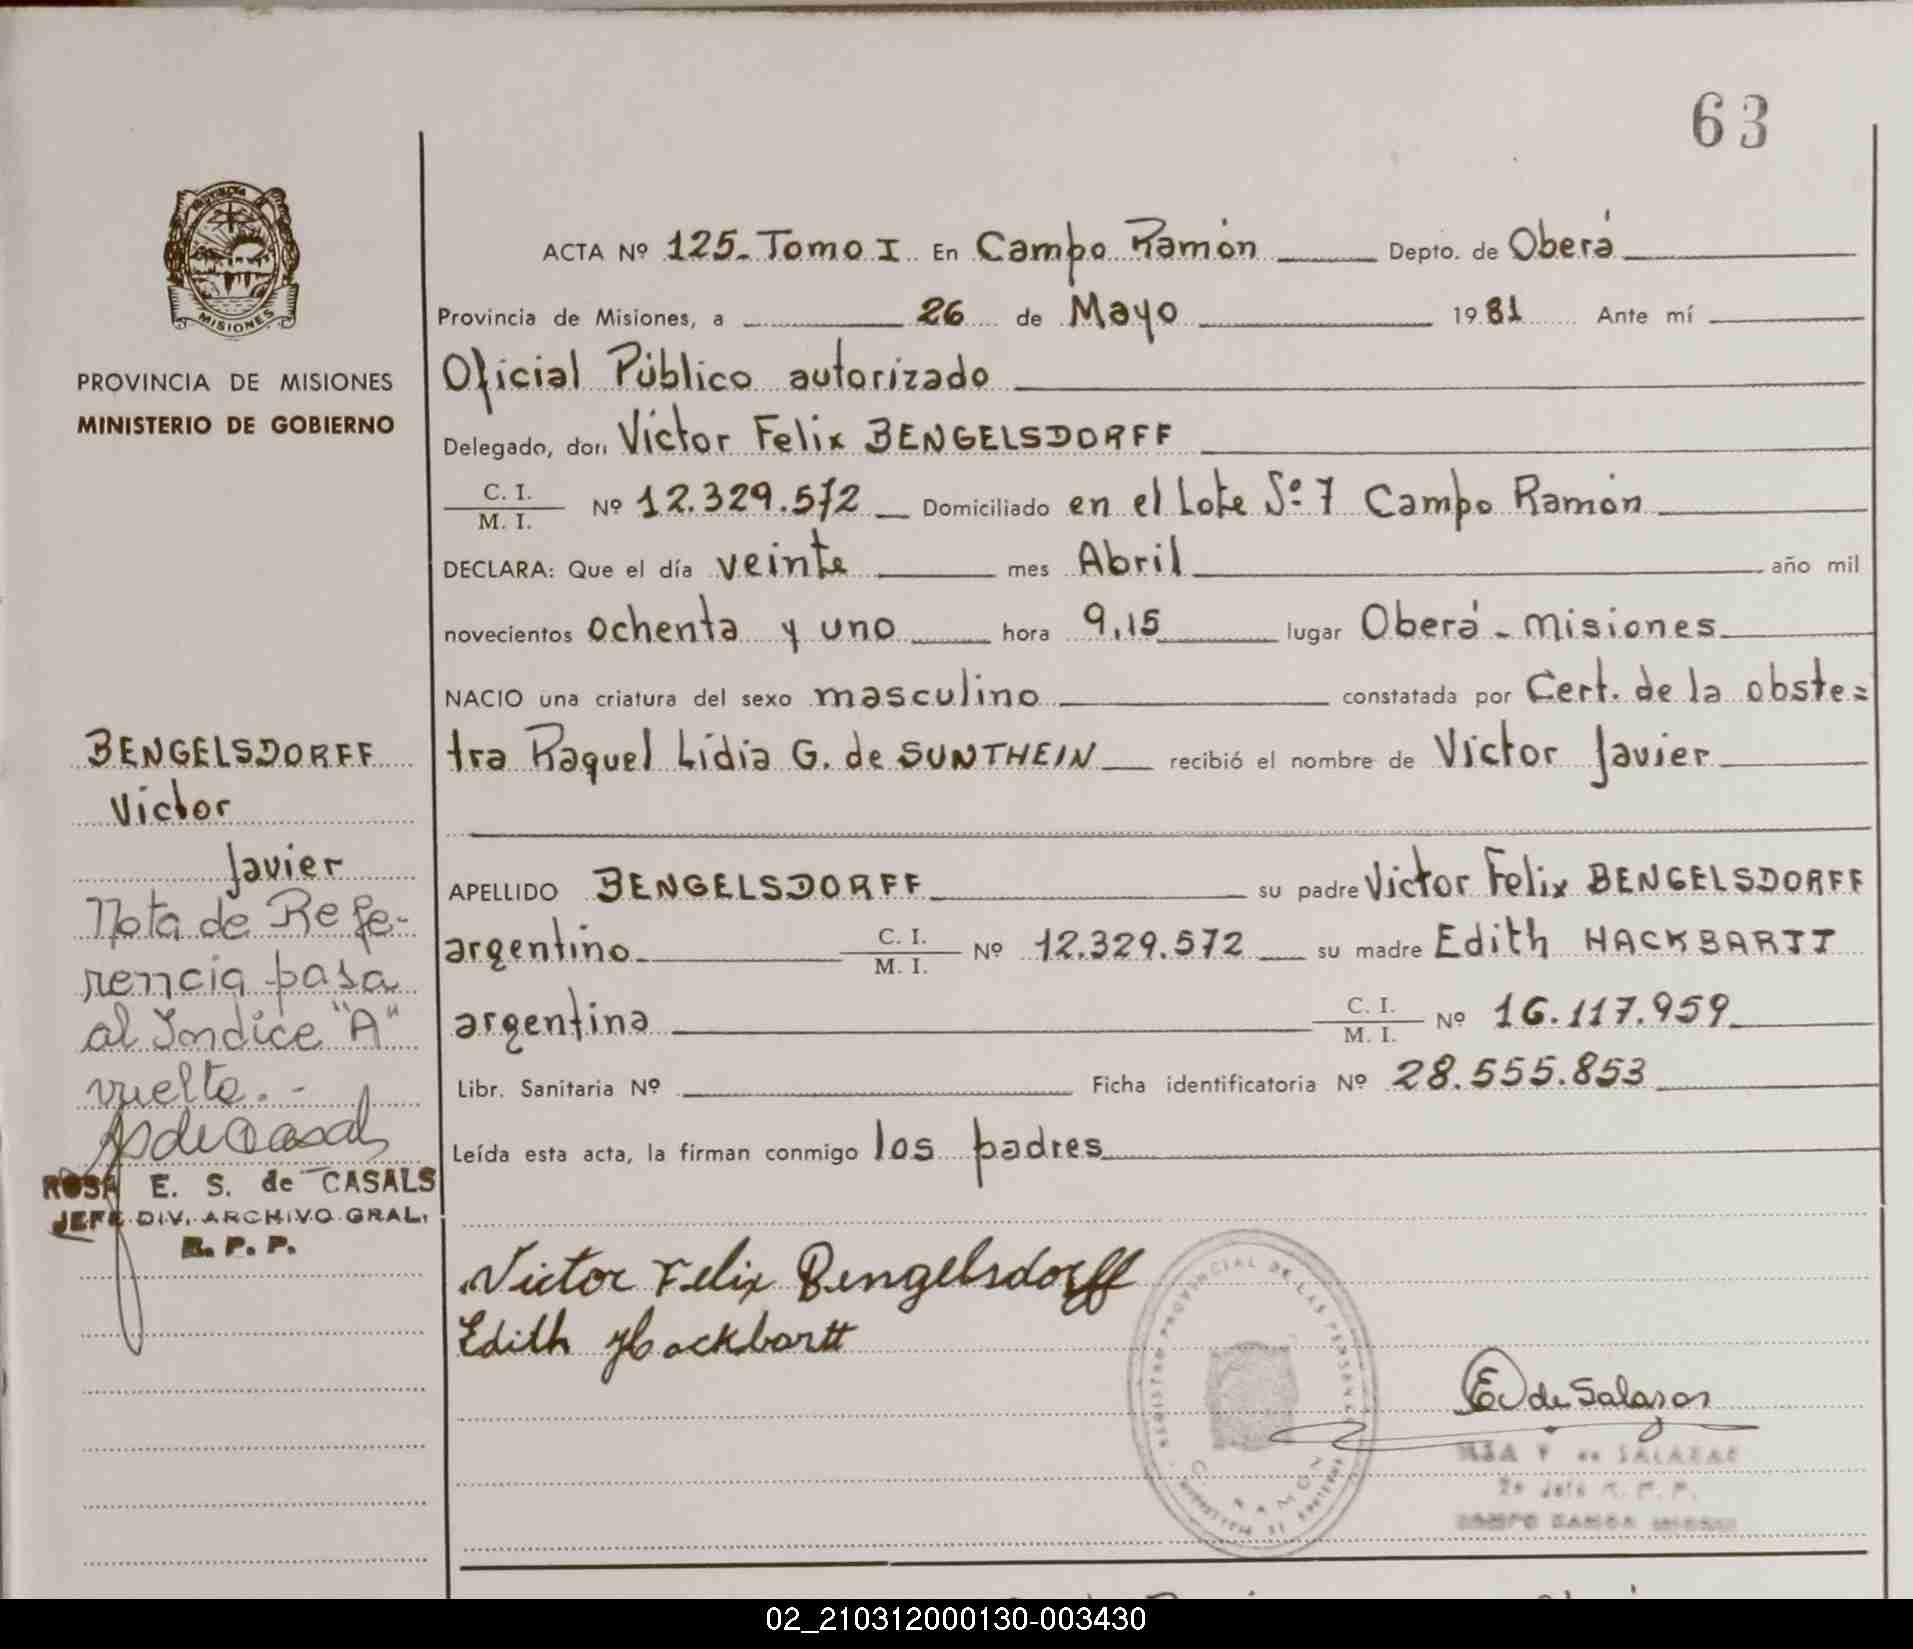 63
ACTA Nº 125_ Tomo I En Campo Ramón Depto. de Oberá
Provincia de Misiones, a 26 de Mayo 1981 Ante mí
Oficial Público autorizado
Delegado, don Victor Felix BENGELSDORFF
C. I.
M. I. Nº 12.329.572 Domiciliado en el Lote Sº 7 Campo Ramón
DECLARA: Que el día veinte mes Abril año mil
novecientos ochenta y uno hora 9,15 lugar Oberá - Misiones
NACIO una criatura del sexo masculino constatada por Cert. de la obste=
tra Raquel Lidia G. de SUNTHEIN recibió el nombre de Victor Javier
APELLIDO BENGELSDORFF su padre Victor Felix BENGELSDORFF
argentino C. I.
M. I. Nº 12.329.572 su madre Edith HACKBARTT
argentina C. I.
M. I. Nº 16.117.959
Libr. Sanitaria Nº Ficha identificatoria Nº 28.555.853
Leída esta acta, la firman conmigo los padres
Victor Felix Bengelsdorff
Edith Hackbartt
de Salazar
de SALAZAR
REGISTRO PROVINCIAL DE LAS PERSONAS
C. RAMON
MISIONES
PROVINCIA DE MISIONES
MINISTERIO DE GOBIERNO
BENGELSDORFF
Victor
Javier
Nota de Refe-
rencia pasa
al Indice "A"
vuelta.-
de Casals
ROSA E. S. de CASALS
JEFE DIV. ARCHIVO GRAL.
R. P. P.
02_210312000130-003430